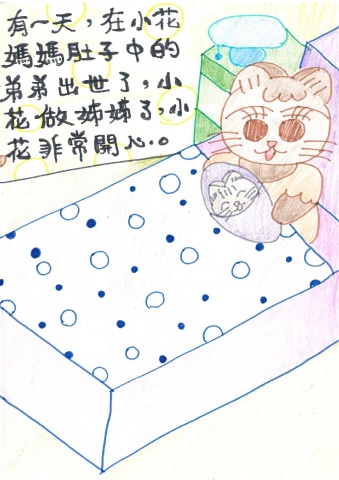 有一天，在小花
媽媽肚子中的
弟弟出世了，小
花做姊姊了，小
花非常開心。